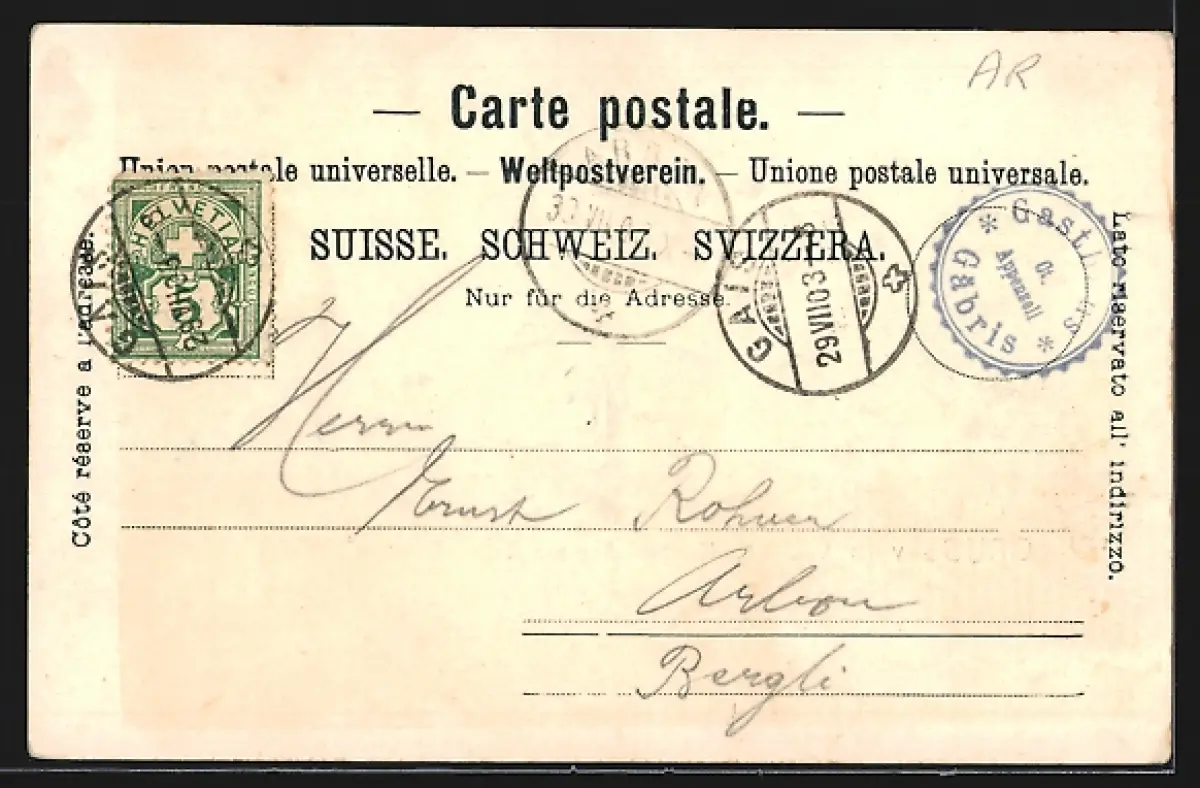 AR
— Carte postale. —
Union postale universelle. — Weltpostverein. — Unione postale universale.
SUISSE. SCHWEIZ. SVIZZERA.
Nur für die Adresse.
HELVETIA
GAIS
29 VII 03
GAIS
29 VII 03
ARBON
30 VII 03
Gasthaus
Ct. Appenzell
Gäbris
Côté réservé à l'adresse.
Lato riservato all' indirizzo.
Herrn
Ernst Rohner
Arbon
Bergli